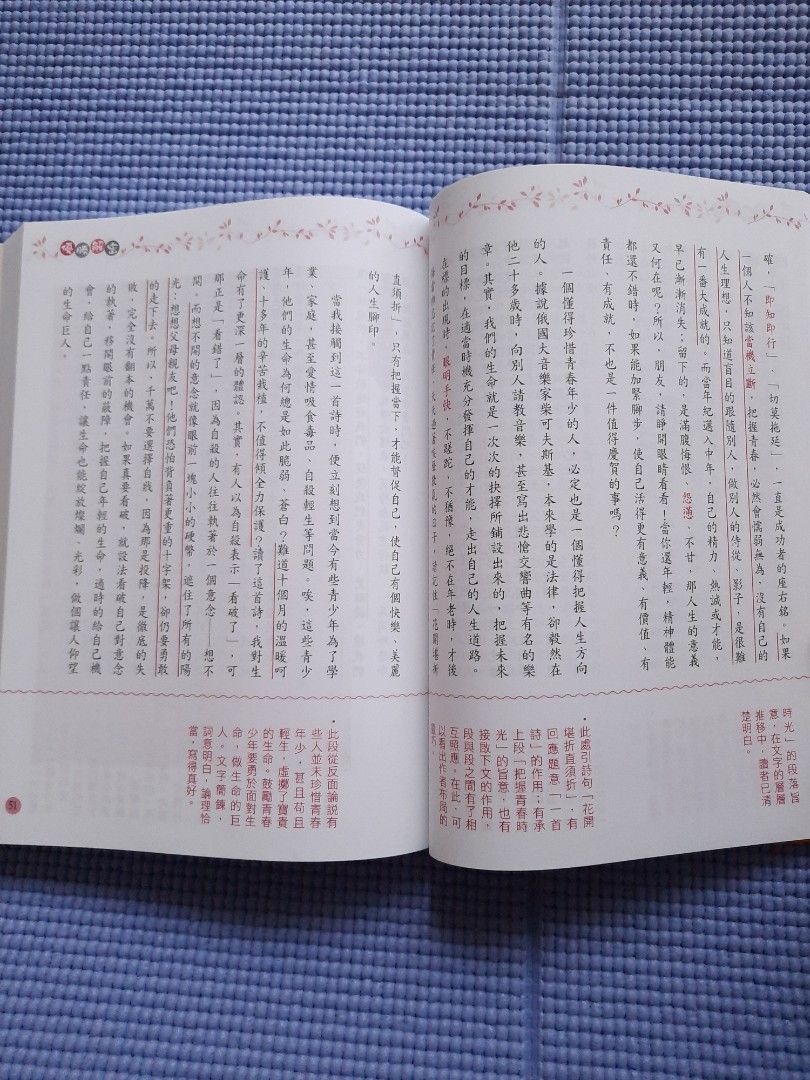 確，「即知即行」、「切莫拖延」，一直是成功者的座右銘。如果
一個人不知該當機立斷，把握青春，必然會懦弱無為，沒有自己的
人生理想，只知道盲目的跟隨別人，做別人的侍從、影子，是很難
有一番大成就的。而當年紀邁入中年，自己的精力、熱誠或才能，
早已漸漸消失；留下的，是滿腹悔恨、怨懣、不甘，那人生的意義
又何在呢？所以，朋友，請睜開眼睛看看！當你還年輕，精神體能
都還不錯時，如果能加緊腳步，使自己活得更有意義、有價值、有
責任、有成就，不也是一件值得慶賀的事嗎？
一個懂得珍惜青春年少的人，必定也是一個懂得把握人生方向
的人。據說俄國大音樂家柴可夫斯基，本來學的是法律，卻毅然在
他二十多歲時，向別人請教音樂，甚至寫出悲愴交響曲等有名的樂
章。其實，我們的生命就是一次次的抉擇所鋪設出來的，把握未來
的目標，在適當時機充分發揮自己的才能，走出自己的人生道路。
在標的出現時，眼明手快，不蹉跎，不猶豫，絕不在年老時，才後
「花開堪折
時光」的段落旨
意，在文字的層層
推移中，讀者已清
楚明白。
・此處引詩句「花開
堪折直須折」，有
回應題意——一首
詩」的作用；有承
上段「把握青春時
光」的旨意，也有
接啟下文的作用，
段與段之間有了相
互照應。在此，可
以看出作者布局的
直須折」，只有把握當下，才能督促自己，使自己有個快樂、美麗
的人生腳印。
當我接觸到這一首詩時，便立刻想到當今有些青少年為了學
業、家庭，甚至愛情吸食毒品、自殺輕生等問題。唉，這些青少
年，他們的生命為何總是如此脆弱、蒼白？難道十個月的溫暖呵
護，十多年的辛苦栽植，不值得傾全力保護？讀了這首詩，我對生
命有了更深一層的體認。其實，有人以為自殺表示「看破了」，可
那正是「看錯了」，因為自殺的人往往執著於一個意念——想不
開。而想不開的意念就像眼前一塊小小的硬幣，遮住了所有的陽
光，想想父母親友吧！他們恐怕背負著更重的十字架，卻仍要勇敢
的走下去。所以，千萬不要選擇自戕，因為那是投降，是徹底的失
敗，完全沒有翻本的機會。如果真要看破，就設法看破自己對意念
的執著，移開眼前的蔽障，把握自己年輕的生命，適時的給自己機
會，給自己一點責任，讓生命也能綻放燦爛、光彩，做個讓人仰望
的生命巨人。
・此段從反面論說有
些人並未珍惜青春
年少，甚且苟且
輕生，虛擲了寶貴
的生命。鼓勵青春
少年要勇於面對生
命，做生命的巨
人。文字簡鍊，
詞意明白，論理恰
當，寫得真好。
51